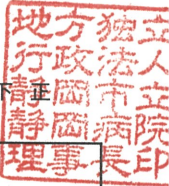 地方独立
行政法人
静岡市立
静岡病院
理事長印
正